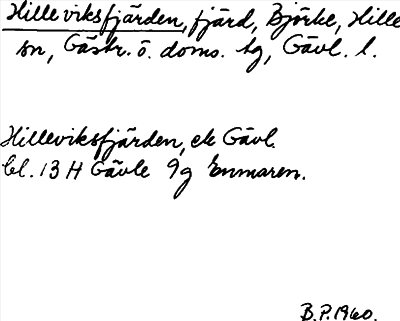 Hilleviksfjärden, fjärd, Björke, Hille
sn, Gästr. ö. doms. tg, Gävl. l.
Hilleviksfjärden, ek Gävl.
bl. 13 H Gävle 9g Enmaren.
B.P. 1960.